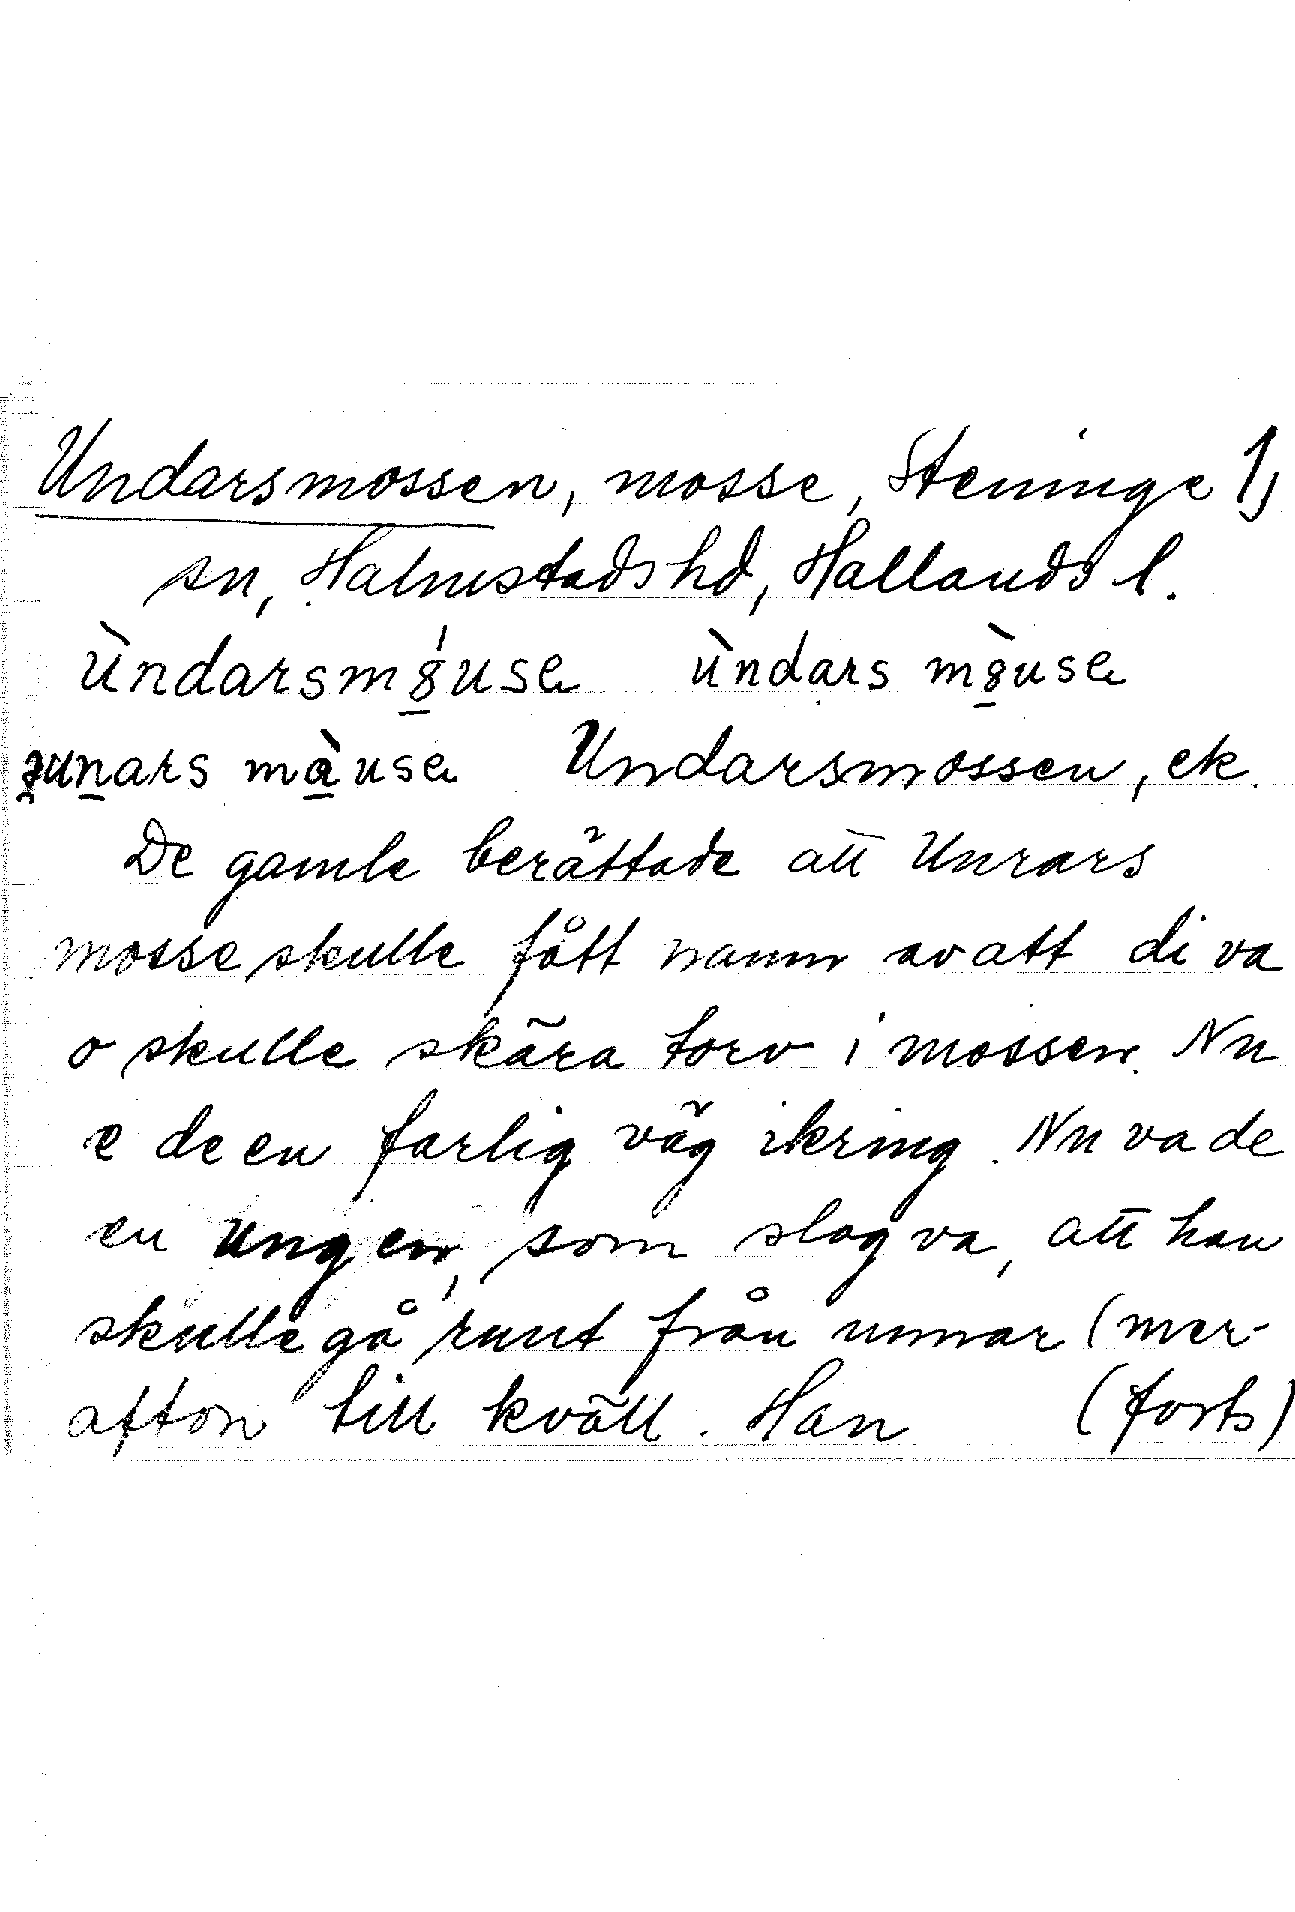 Undarsmossen, mosse, Steninge 1)
sn, Halmstads hd, Hallands l.
ùndarsmȣ́use ùndars mȣ̀use
unars màuse Undarsmossen, ek.
De gamle berättade att Unrars
mosse skulle fått namn av att di va
o skulle skära torv i mossen. Nu
e de en farlig väg ikring. Nu va de
en ungen, som slog va, att han
skulle gå runt från unnar (mer-
afton till kväll. Han (forts)